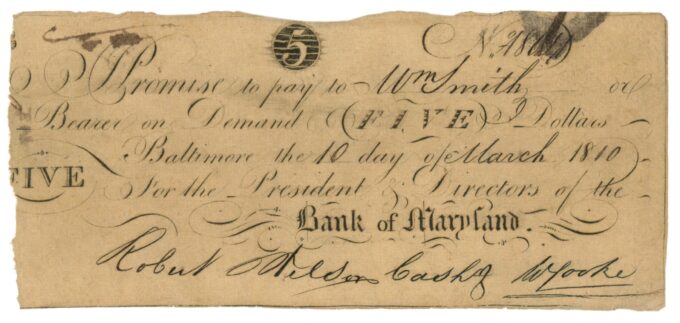 5
I Promise to pay to Wm Smith or
Bearer on Demand FIVE Dollars
Baltimore the 10 day of March 1810
FIVE
For the President & Directors of the
Bank of Maryland.
Robert Wilson Cashr